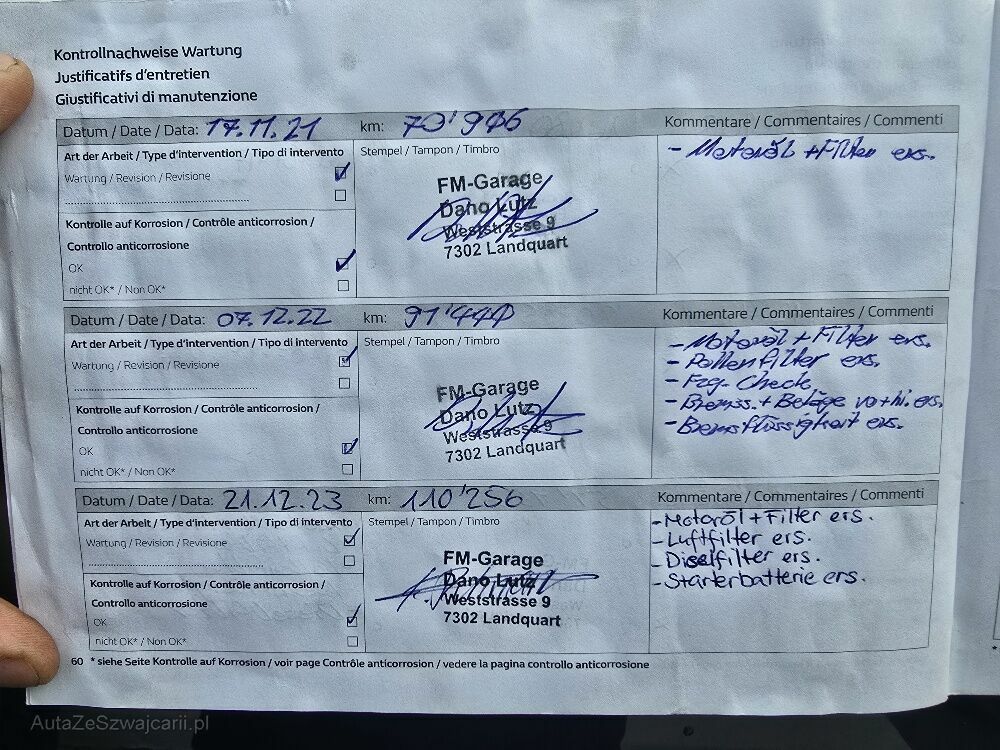 Kontrollnachweise Wartung
Justificatifs d'entretien
Giustificativi di manutenzione
Datum / Date / Data: 17.11.21 km: 70'906 Kommentare / Commentaires / Commenti
Art der Arbeit / Type d'intervention / Tipo di intervento Stempel / Tampon / Timbro - Motoröl + Filter ers.
Wartung / Revision / Revisione
FM-Garage
Dano Lutz
Weststrasse 9
7302 Landquart
Kontrolle auf Korrosion / Contrôle anticorrosion /
Controllo anticorrosione
OK
nicht OK* / Non OK*
Datum / Date / Data: 07.12.22 km: 91'440 Kommentare / Commentaires / Commenti
Art der Arbeit / Type d'intervention / Tipo di intervento Stempel / Tampon / Timbro
Wartung / Revision / Revisione
FM-Garage
Dano Lutz
Weststrasse 9
7302 Landquart
- Motoröl + Filter ers.
- Pollenfilter ers.
- Fzg-Check
- Bremss. + Beläge vo+hi. ers.
- Bremsflüssigkeit ers.
Kontrolle auf Korrosion / Contrôle anticorrosion /
Controllo anticorrosione
OK
nicht OK* / Non OK*
Datum / Date / Data: 21.12.23 km: 110'256 Kommentare / Commentaires / Commenti
Art der Arbeit / Type d'intervention / Tipo di intervento Stempel / Tampon / Timbro
Wartung / Revision / Revisione
FM-Garage
Dano Lutz
Weststrasse 9
7302 Landquart
- Motoröl + Filter ers.
- Luftfilter ers.
- Dieselfilter ers.
- Starterbatterie ers.
Kontrolle auf Korrosion / Contrôle anticorrosion /
Controllo anticorrosione
OK
nicht OK* / Non OK*
60 * siehe Seite Kontrolle auf Korrosion / voir page Contrôle anticorrosion / vedere la pagina controllo anticorrosione
AutaZeSzwajcarii.pl